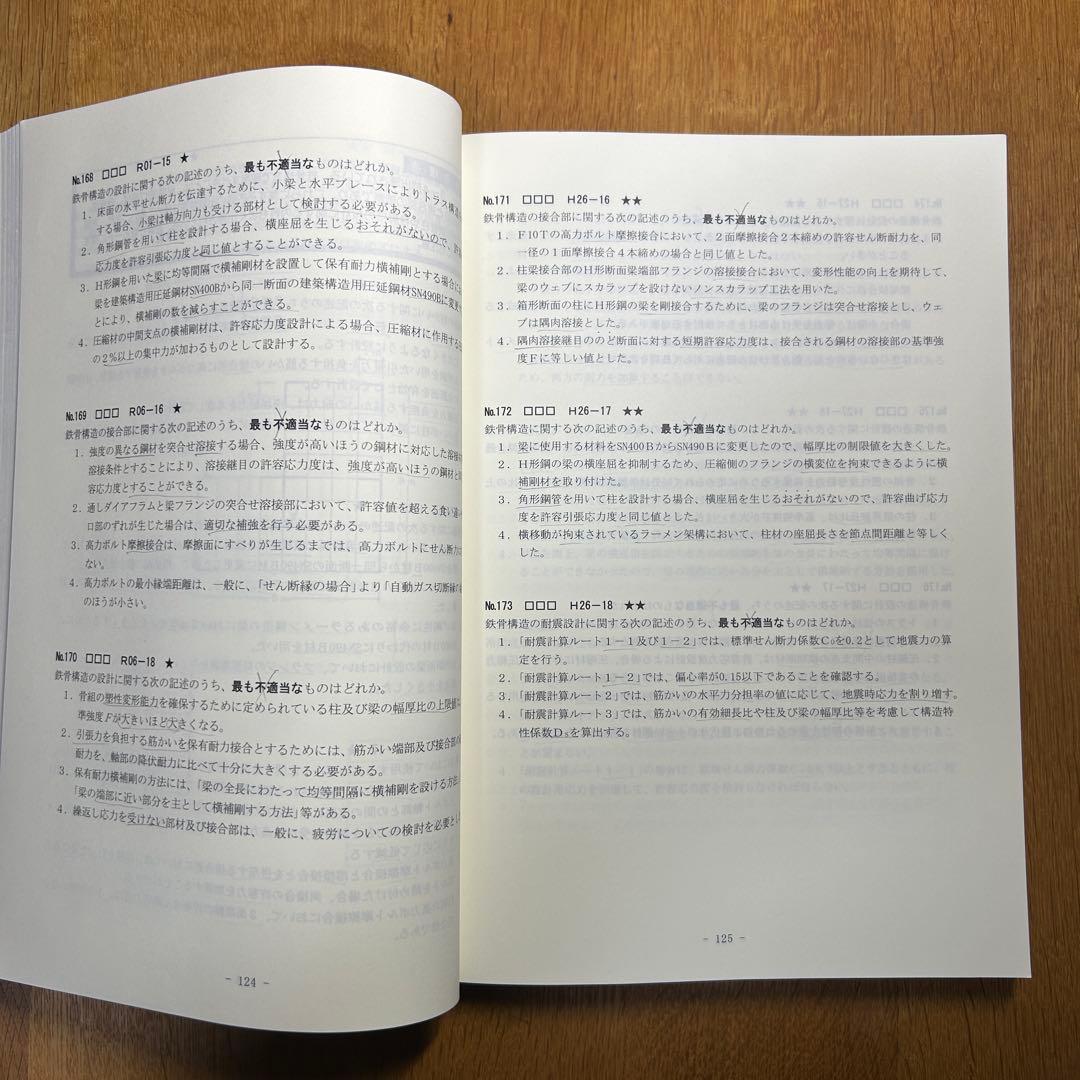 No.168 □□□ R01－15 ★
鉄骨構造の設計に関する次の記述のうち、最も不適当なものはどれか。
1．床面の水平せん断力を伝達するために、小梁と水平ブレースによりトラス構造
する場合、小梁は軸方向力も受ける部材として検討する必要がある。
2．角形鋼管を用いて柱を設計する場合、横座屈を生じるおそれがないので、許
応力度を許容引張応力度と同じ値とすることができる。
3．H形鋼を用いた梁に均等間隔で横補剛材を設置して保有耐力横補剛とする場合に
梁を建築構造用圧延鋼材SN400Bから同一断面の建築構造用圧延鋼材SN490Bに変更
とにより、横補剛の数を減らすことができる。
4．圧縮材の中間支点の横補剛材は、許容応力度設計による場合、圧縮材に作用する
の2％以上の集中力が加わるものとして設計する。
No.169 □□□ R06－16 ★
鉄骨構造の接合部に関する次の記述のうち、最も不適当なものはどれか。
1．強度の異なる鋼材を突合せ溶接する場合、強度が高いほうの鋼材に対応した溶接
溶接条件とすることにより、溶接継目の許容応力度は、強度が高いほうの鋼材と
容応力度とすることができる。
2．通しダイアフラムと梁フランジの突合せ溶接部において、許容値を超える食い違
口部のずれが生じた場合は、適切な補強を行う必要がある。
3．高力ボルト摩擦接合は、摩擦面にすべりが生じるまでは、高力ボルトにせん断力
ない。
4．高力ボルトの最小縁端距離は、一般に、「せん断縁の場合」より「自動ガス切断縁の
のほうが小さい。
No.170 □□□ R06－18 ★
鉄骨構造の設計に関する次の記述のうち、最も不適当なものはどれか。
1．骨組の塑性変形能力を確保するために定められている柱及び梁の幅厚比の上限値
準強度Fが大きいほど大きくなる。
2．引張力を負担する筋かいを保有耐力接合とするためには、筋かい端部及び接合部の
耐力を、軸部の降伏耐力に比べて十分に大きくする必要がある。
3．保有耐力横補剛の方法には、「梁の全長にわたって均等間隔に横補剛を設ける方法」
「梁の端部に近い部分を主として横補剛する方法」等がある。
4．繰返し応力を受けない部材及び接合部は、一般に、疲労についての検討を必要とし
- 124 -
No.171 □□□ H26－16 ★★
鉄骨構造の接合部に関する次の記述のうち、最も不適当なものはどれか。
1．F10Tの高力ボルト摩擦接合において、2面摩擦接合2本締めの許容せん断耐力を、同
一径の1面摩擦接合4本締めの場合と同じ値とした。
2．柱梁接合部のH形断面梁端部フランジの溶接接合において、変形性能の向上を期待して、
梁のウェブにスカラップを設けないノンスカラップ工法を用いた。
3．箱形断面の柱にH形鋼の梁を剛接合するために、梁のフランジは突合せ溶接とし、ウェ
ブは隅肉溶接とした。
4．隅肉溶接継目ののど断面に対する短期許容応力度は、接合される鋼材の溶接部の基準強
度Fに等しい値とした。
No.172 □□□ H26－17 ★★
鉄骨構造に関する次の記述のうち、最も不適当なものはどれか。
1．梁に使用する材料をSN400BからSN490Bに変更したので、幅厚比の制限値を大きくした。
2．H形鋼の梁の横座屈を抑制するため、圧縮側のフランジの横変位を拘束できるように横
補剛材を取り付けた。
3．角形鋼管を用いて柱を設計する場合、横座屈を生じるおそれがないので、許容曲げ応力
度を許容引張応力度と同じ値とした。
4．横移動が拘束されているラーメン架構において、柱材の座屈長さを節点間距離と等しく
した。
No.173 □□□ H26－18 ★★
鉄骨構造の耐震設計に関する次の記述のうち、最も不適当なものはどれか。
1．「耐震計算ルート1－1及び1－2」では、標準せん断力係数C₀を0.2として地震力の算
定を行う。
2．「耐震計算ルート1－2」では、偏心率が0.15以下であることを確認する。
3．「耐震計算ルート2」では、筋かいの水平力分担率の値に応じて、地震時応力を割り増す。
4．「耐震計算ルート3」では、筋かいの有効細長比や柱及び梁の幅厚比等を考慮して構造特
性係数Dsを算出する。
- 125 -